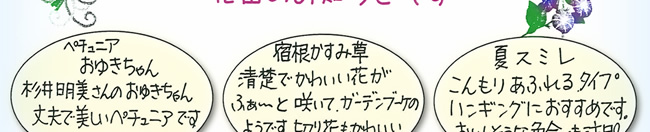 ペチュニア
おゆきちゃん
杉井明美さんのおゆきちゃん
丈夫で美しいペチュニアです
宿根かすみ草
清楚でかわいい花が
ふぁ〜と咲いて、ガーデンブーケの
ようです。切り花もかわいい
夏スミレ
こんもりあふれるタイプ
ハンギングにおすすめです。